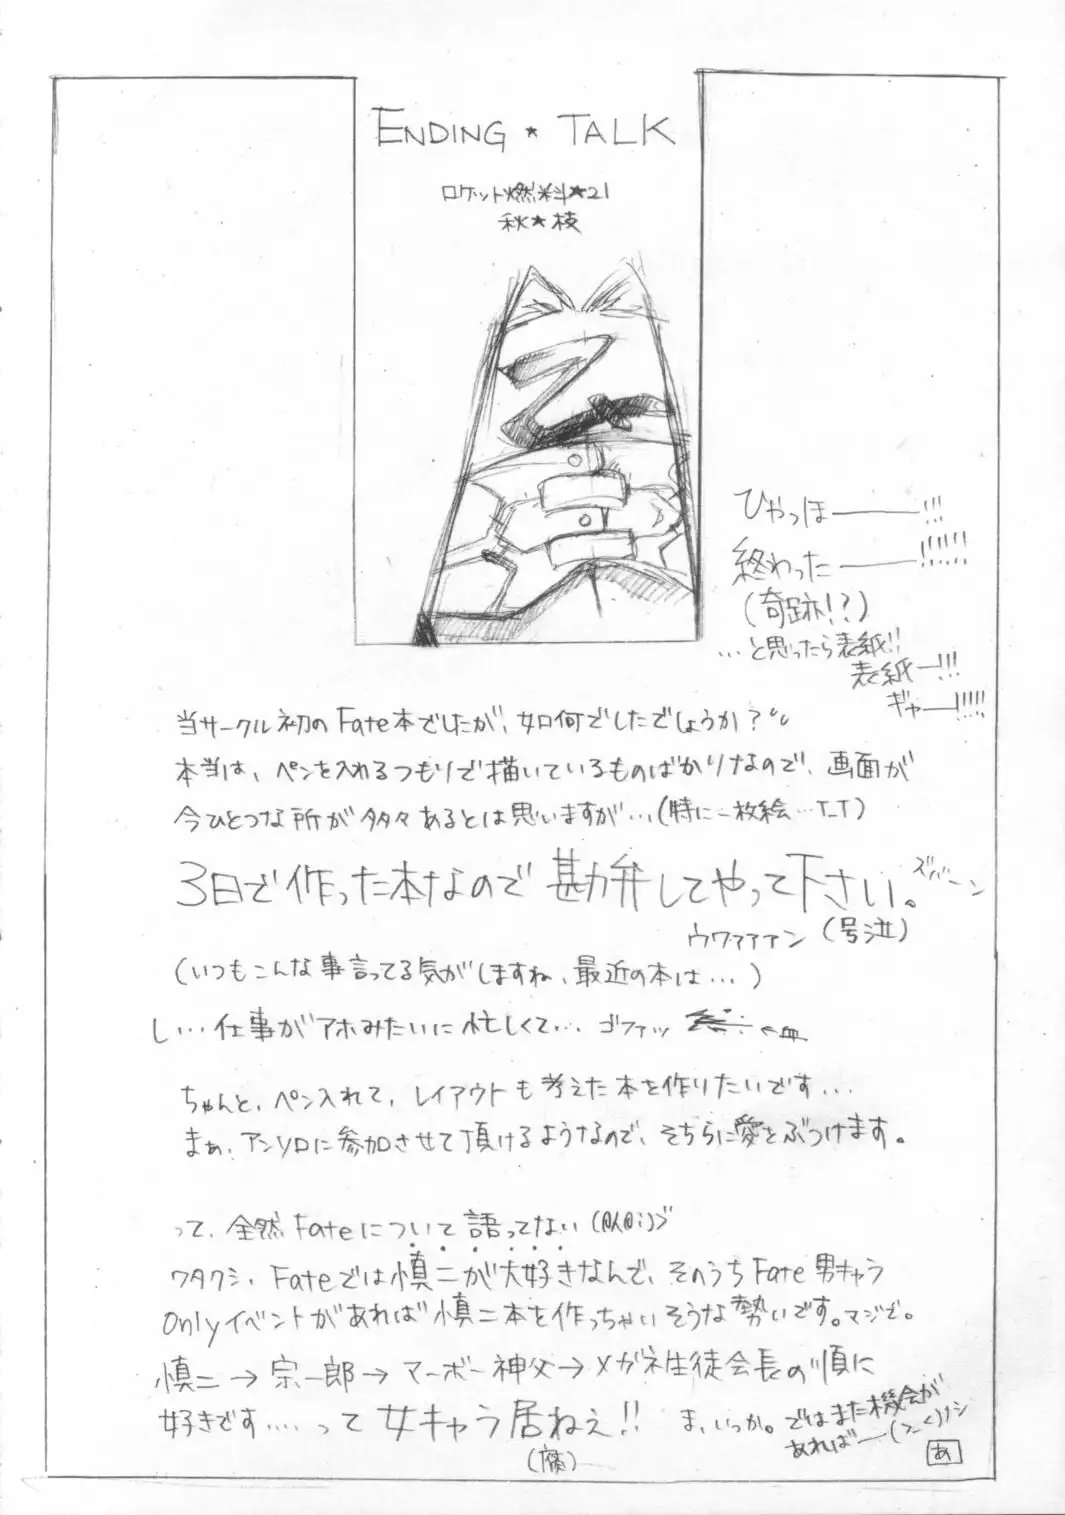 ENDING ★ TALK
ロケット燃料★21
秋★枝
ひやっほーーー!!!
終わったーーー!!!!!!
(奇跡!?)
…と思ったら表紙!!
表紙ー!!!
ギャー!!!!!
当サークル初のFate本でしたが、如何でしたでしょうか?
本当は、ペンを入れるつもりで描いているものばかりなので、画面が
今ひとつな所が多々あるとは思いますが…(特に一枚絵…T_T)
3日で作った本なので勘弁してやって下さい。
ズバーン
ウワァァァン(号泣)
(いつもこんな事言ってる気がしますね、最近の本は…)
し…仕事がアホみたいに忙しくて… ゴファッ ←血
ちゃんと、ペン入れて、レイアウトも考えた本を作りたいです…
まぁ、アンソロに参加させて頂けるようなので、そちらに愛をぶつけます。
って、全然Fateについて語ってない
ワタクシ、Fateでは慎二が大好きなんで、そのうちFate男キャラ
Onlyイベントがあれば慎二本を作っちゃいそうな勢いです。マジで。
慎二→宗一郎→マーボー神父→メガネ生徒会長の順に
好きです….って女キャラ居ねぇ!!
(腐)
ま、いっか。ではまた機会が
あればー(>_<)ノシ
あ